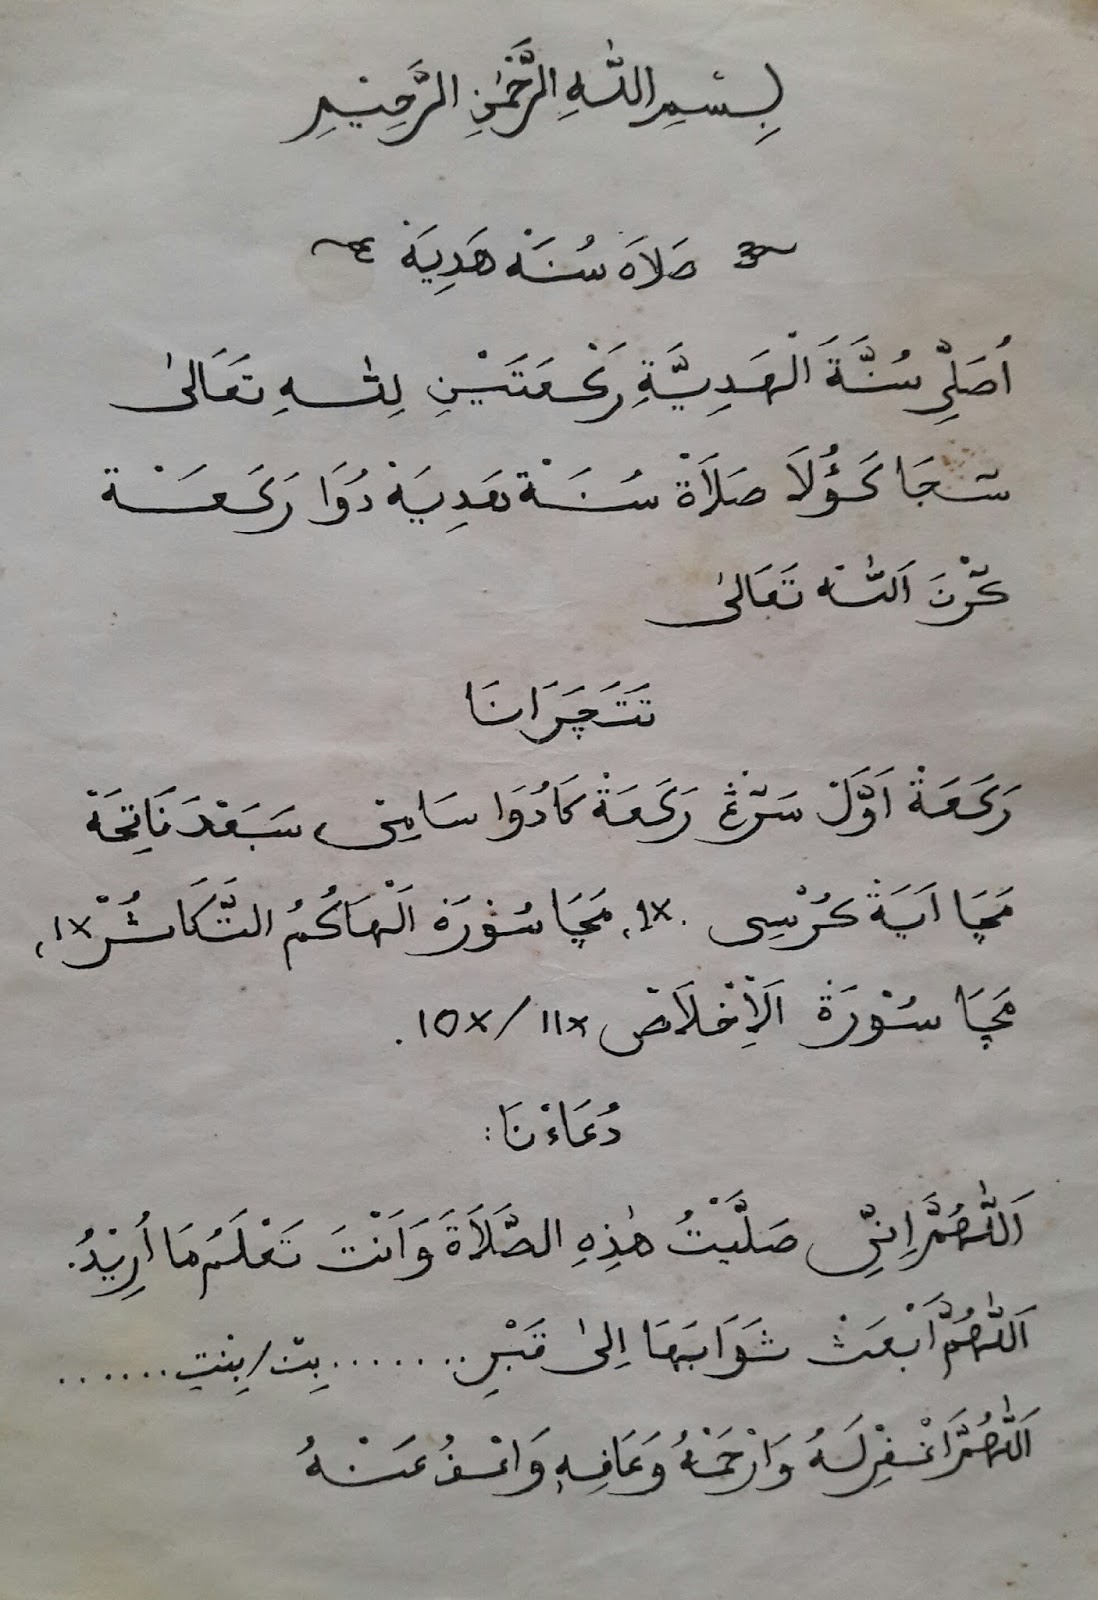 بِسْمِ اللّٰهِ الرَّحْمٰنِ الرَّحِيْمِ
صَلاَة سُنَةْ هَدِيَةْ
اُصَلِّى سُنَّةَ الْهَدِيَّةِ رَكْعَتَيْنِ لِلّٰهِ تَعَالىٰ
سَجَا كَؤُلَا صَلَاةْ سُنَةْ هَدِيَةْ دُوَا رَكَعَةْ
كَرْنَ اَللّٰه تَعَالىٰ
تَتَچَرَانَا
رَكَعَةْ اَوَّلْ سَرْڠْ رَكَعَةْ كَادُوَا سَامِى، سَبَعْدَ فَاتِحَةْ
مَچَا اَيَةْ كُرْسِى 1x، مَچَا سُوْرَةْ اَلْهَاكُمُ التَّكَاثُرْ 1x،
مَچَا سُوْرَةْ اَلْاِخْلَاصْ 11x/10x.
دُعَاءْنَا:
اَللّٰهُمَّ اِنِّى صَلَّيْتُ هٰذِهِ الصَّلَاةَ وَاَنْتَ تَعْلَمُ مَا اُرِيْدُ.
اَللّٰهُمَّ ابْعَثْ ثَوَابَهَا اِلىٰ قَبْرِ....... بِتْ/بِنْتِ......
اَللّٰهُمَّ اغْفِرْلَهُ وَارْحَمْهُ وَعَافِهِ وَاعْفُ عَنْهُ